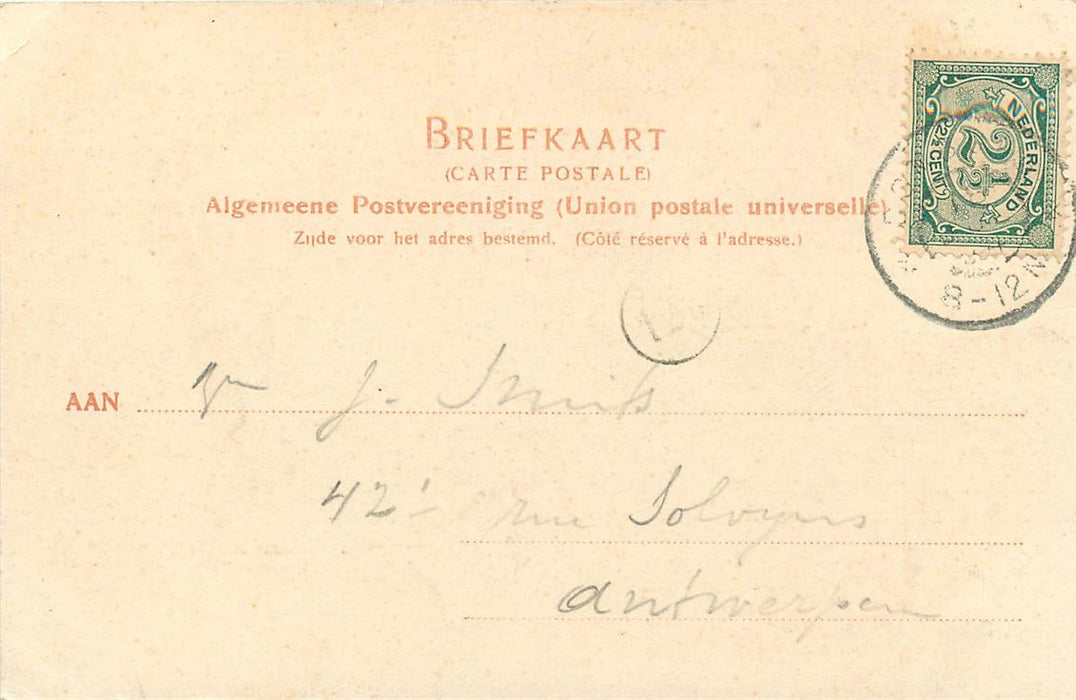 BRIEFKAART
(CARTE POSTALE)
Algemeene Postvereeniging (Union postale universelle)
Zijde voor het adres bestemd. (Côté réservé à l'adresse.)
NEDERLAND
2½
2½ CENT
8-12 N
AAN
J. Smits
42 rue Solvyns
Antwerpen